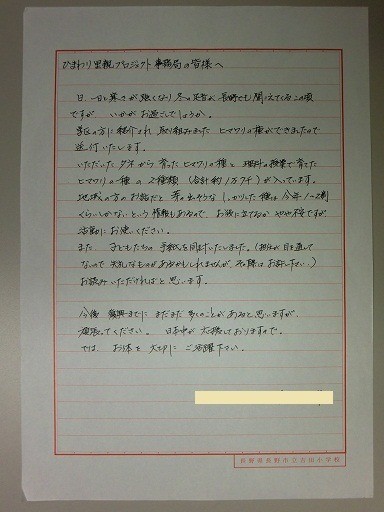 ひまわり里親プロジェクト事務局の皆様へ
日一日と寒さが強くなり冬の足音が長野でも聞こえてくるこの頃
ですが いかがお過ごしでしょうか。
の方に紹介され 取り組みました ヒマワリの種ができましたので
送付いたします。
いただいた タネから 育ったヒマワリの種と 理科の授業で育てた
ヒマワリの種の 2種類 (合計約1万ケ)が入っています。
地域の方のお話だと 芽の出そうな しっかりした種は 今年1~2割
くらいしかないという情報もあるので お役に立てるか やや不安ですが
活動にお使いください。
また 子どもたちの 手紙を同封いたしました。(担任が目を通して
ないので 失礼なものがあるかもしれませんが、その際はお許し下さい。)
お読みいただければと思います。
今後 復興までに まだまだ 多くのことがあると思いますが、
頑張ってください。 日本中が 応援しておりますので。
では、 お体を 大切に ご活躍下さい。
長野県長野市立吉田小学校